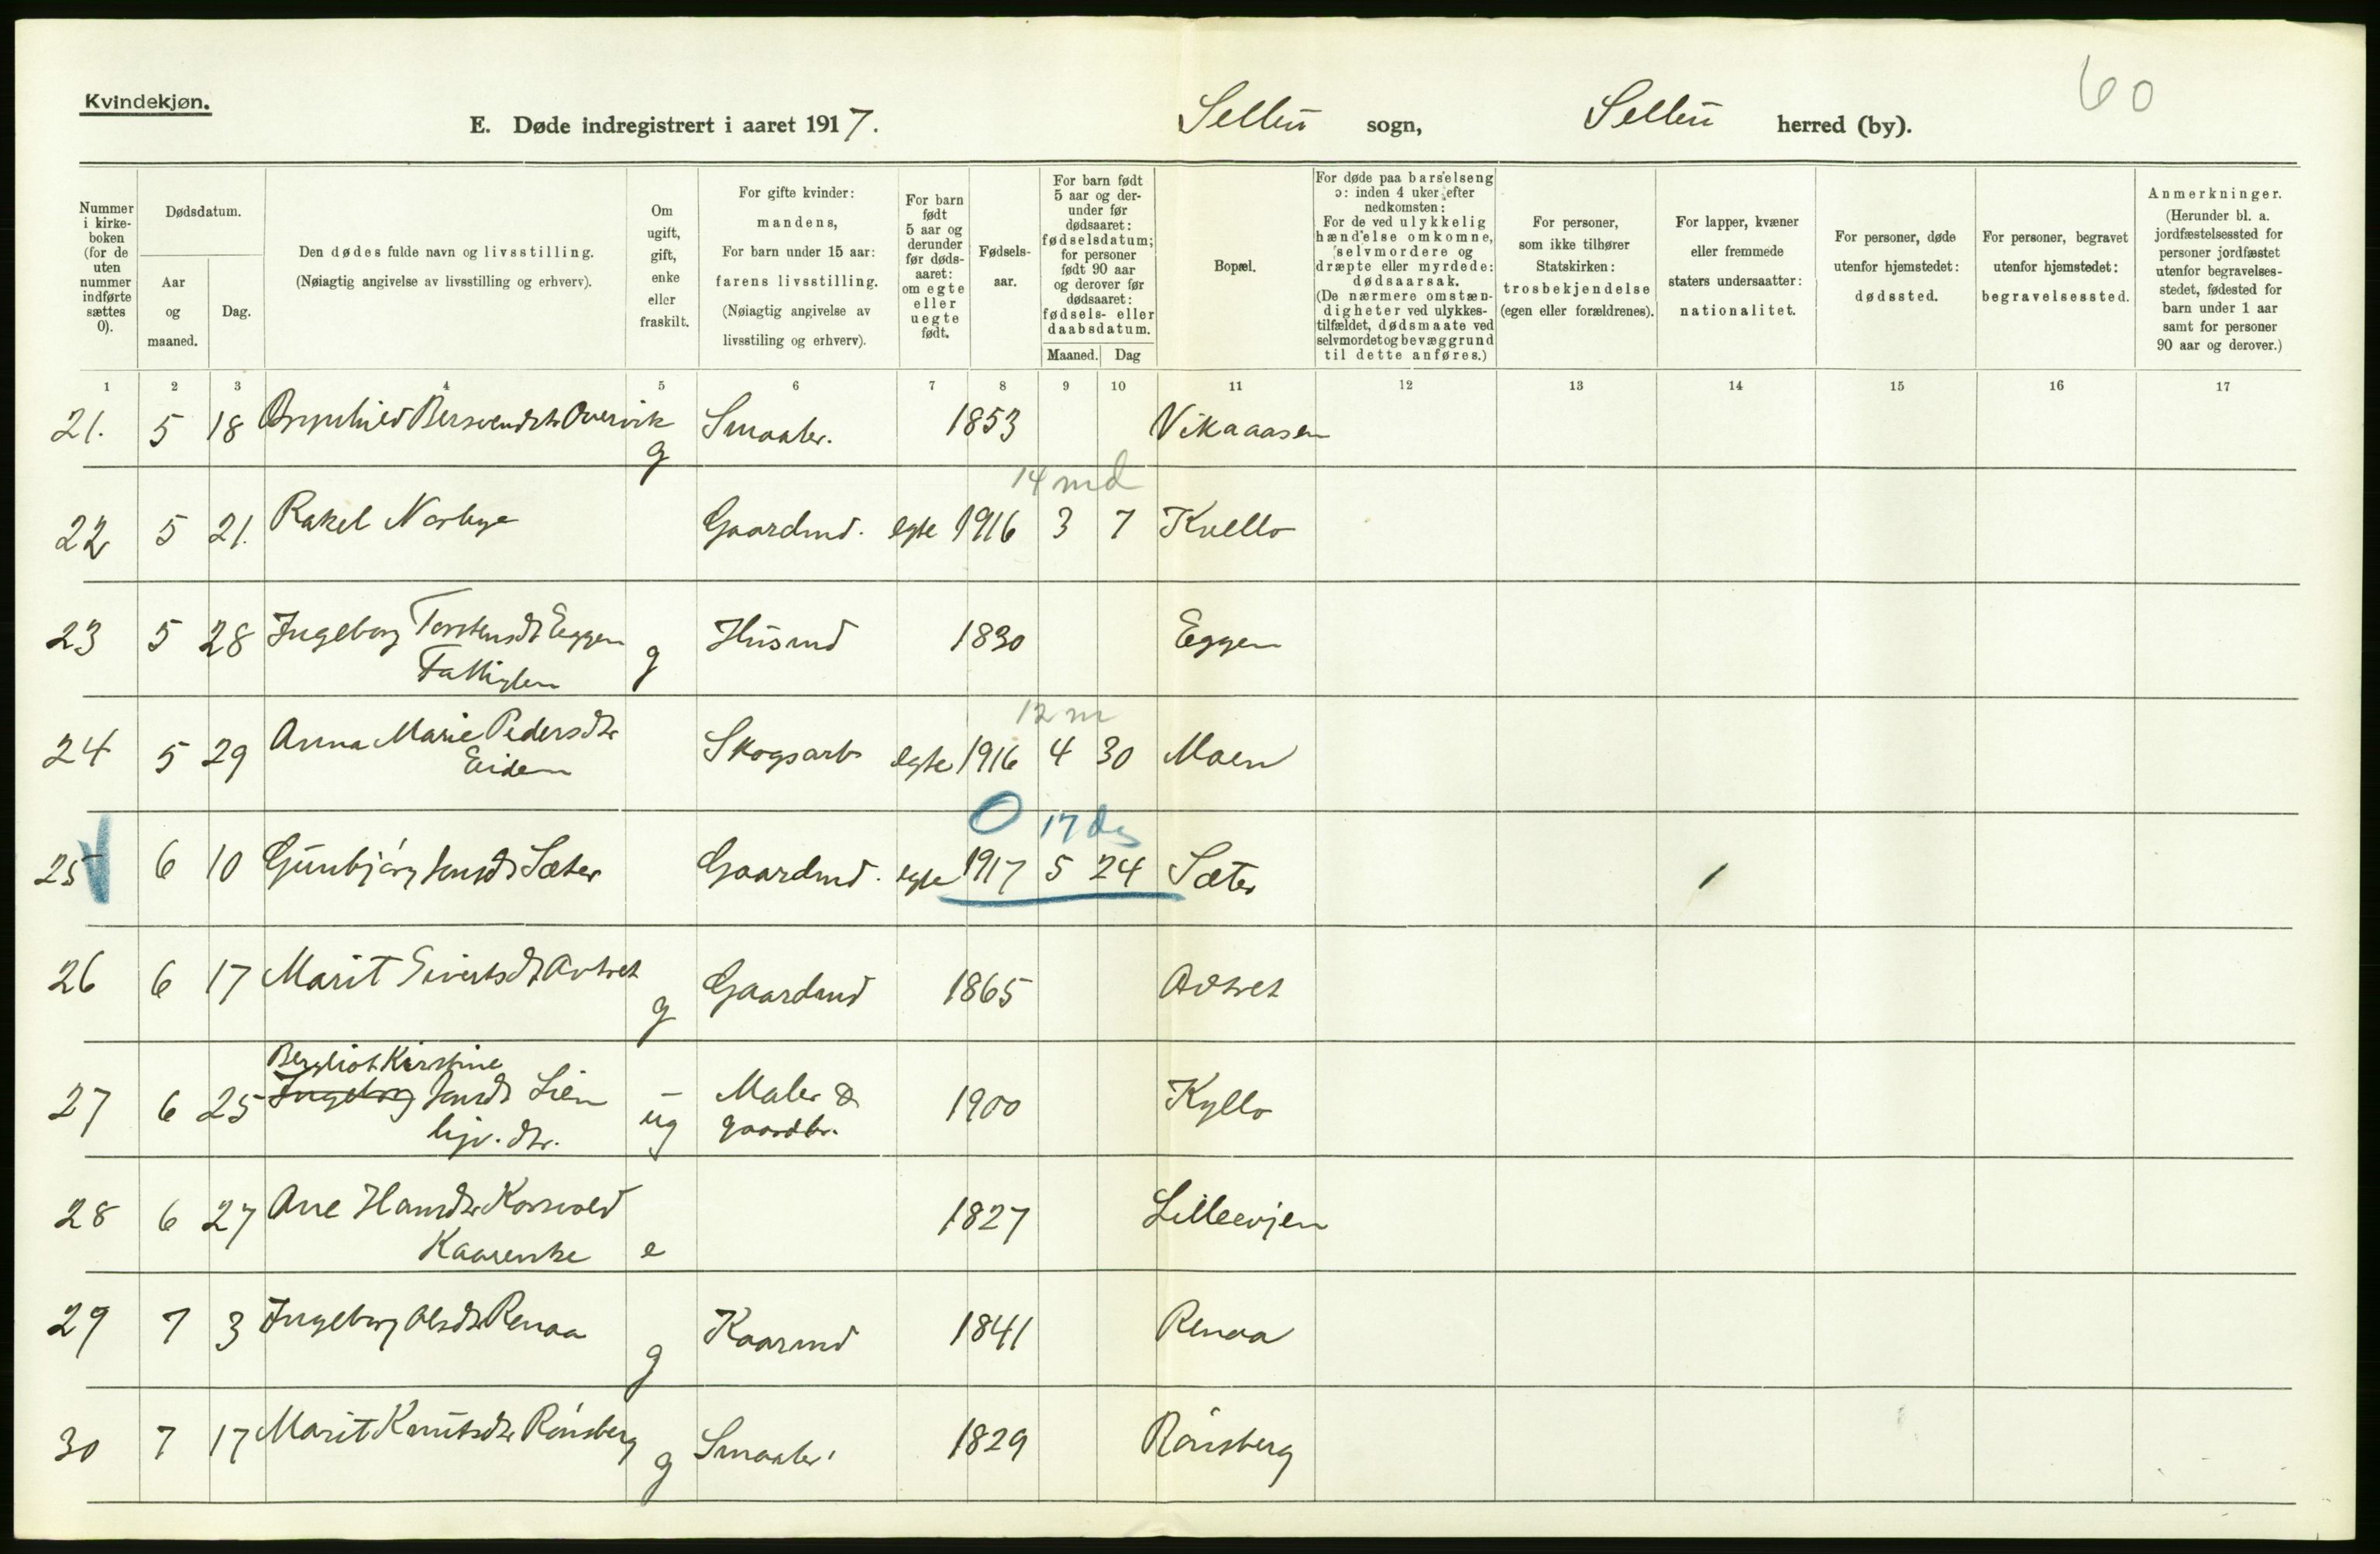 Kvindekjøn.
60
E. Døde indregistrert i aaret 1917. Selbu sogn, Selbu herred (by).
Nummer i kirke-boken (for de uten nummer indførte sættes 0).
Dødsdatum.
Aar og maaned.
Dag.
Den dødes fulde navn og livsstilling.
(Nøiagtig angivelse av livsstilling og erhverv).
Om ugift, gift, enke eller fraskilt.
For gifte kvinder: mandens, For barn under 15 aar: farens livsstilling.
(Nøiagtig angivelse av livsstiling og erhverv).
For barn født 5 aar og derunder før døds-aaret: om egte eller uegte født.
Fødsels-aar.
For barn født 5 aar og der-under før dødsaaret: fødselsdatum; for personer født 90 aar og derover før dødsaaret: fødsels- eller daabsdatum.
Maaned. Dag
Bopæl.
For døde paa barselseng ɔ: inden 4 uker efter nedkomsten: For de ved ulykkelig hændelse omkomne, selvmordere og dræpte eller myrdede: dødsaarsak.
(De nærmere omstæn-digheter ved ulykkes-tilfældet, dødsmaate ved selvmordet og bevæggrund til dette anføres.)
For personer, som ikke tilhører Statskirken: trosbekjendelse (egen eller forældrenes).
For lapper, kvæner eller fremmede staters undersaatter: nationalitet.
For personer, døde utenfor hjemstedet: dødssted.
For personer, begravet utenfor hjemstedet: begravelsessted.
Anmerkninger.
(Herunder bl. a. jordfæstelsessted for personer jordfæstet utenfor begravelses-stedet, fødested for barn under 1 aar samt for personer 90 aar og derover.)
1 2 3 4 5 6 7 8 9 10 11 12 13 14 15 16 17
21. 5 18 Brynhild Bersvendsdtr Overvik g Smaabr. 1853 Vikaaasen
14 md
22 5 21. Rakel Norbye Gaardmd. egte 1916 3 7 Kvello
23 5 28 Ingeborg Torstensdt Eggen g Husmd 1830 Eggen
Fattiglem
12 m
24 5 29 Anna Marie Pedersdtr Skogsarb egte 1916 4 30 Moen
Eidem
0 17 dg
25 6 10 Gunbjørg Jensdt Sæter Gaardmd. egte 1917 5 24 Sæter
26 6 17 Marit Sivertsdt Avtret g Gaardmd 1865 Avtret
Bergliot Kirstine
27 6 25 Ingeborg Jensdt Lien ug Maler & gaardbr. 1900 Kyllo
hjv. dtr.
28 6 27 Ane Hansdtr Korsvold 1827 Lilleevjen
Kaarenke e
29 7 3 Ingeborg Olsdtr Renaa g Kaarmd 1841 Renaa
30 7 17 Marit Knutsdtr Rönsberg g Smaabr. 1829 Rönsberg